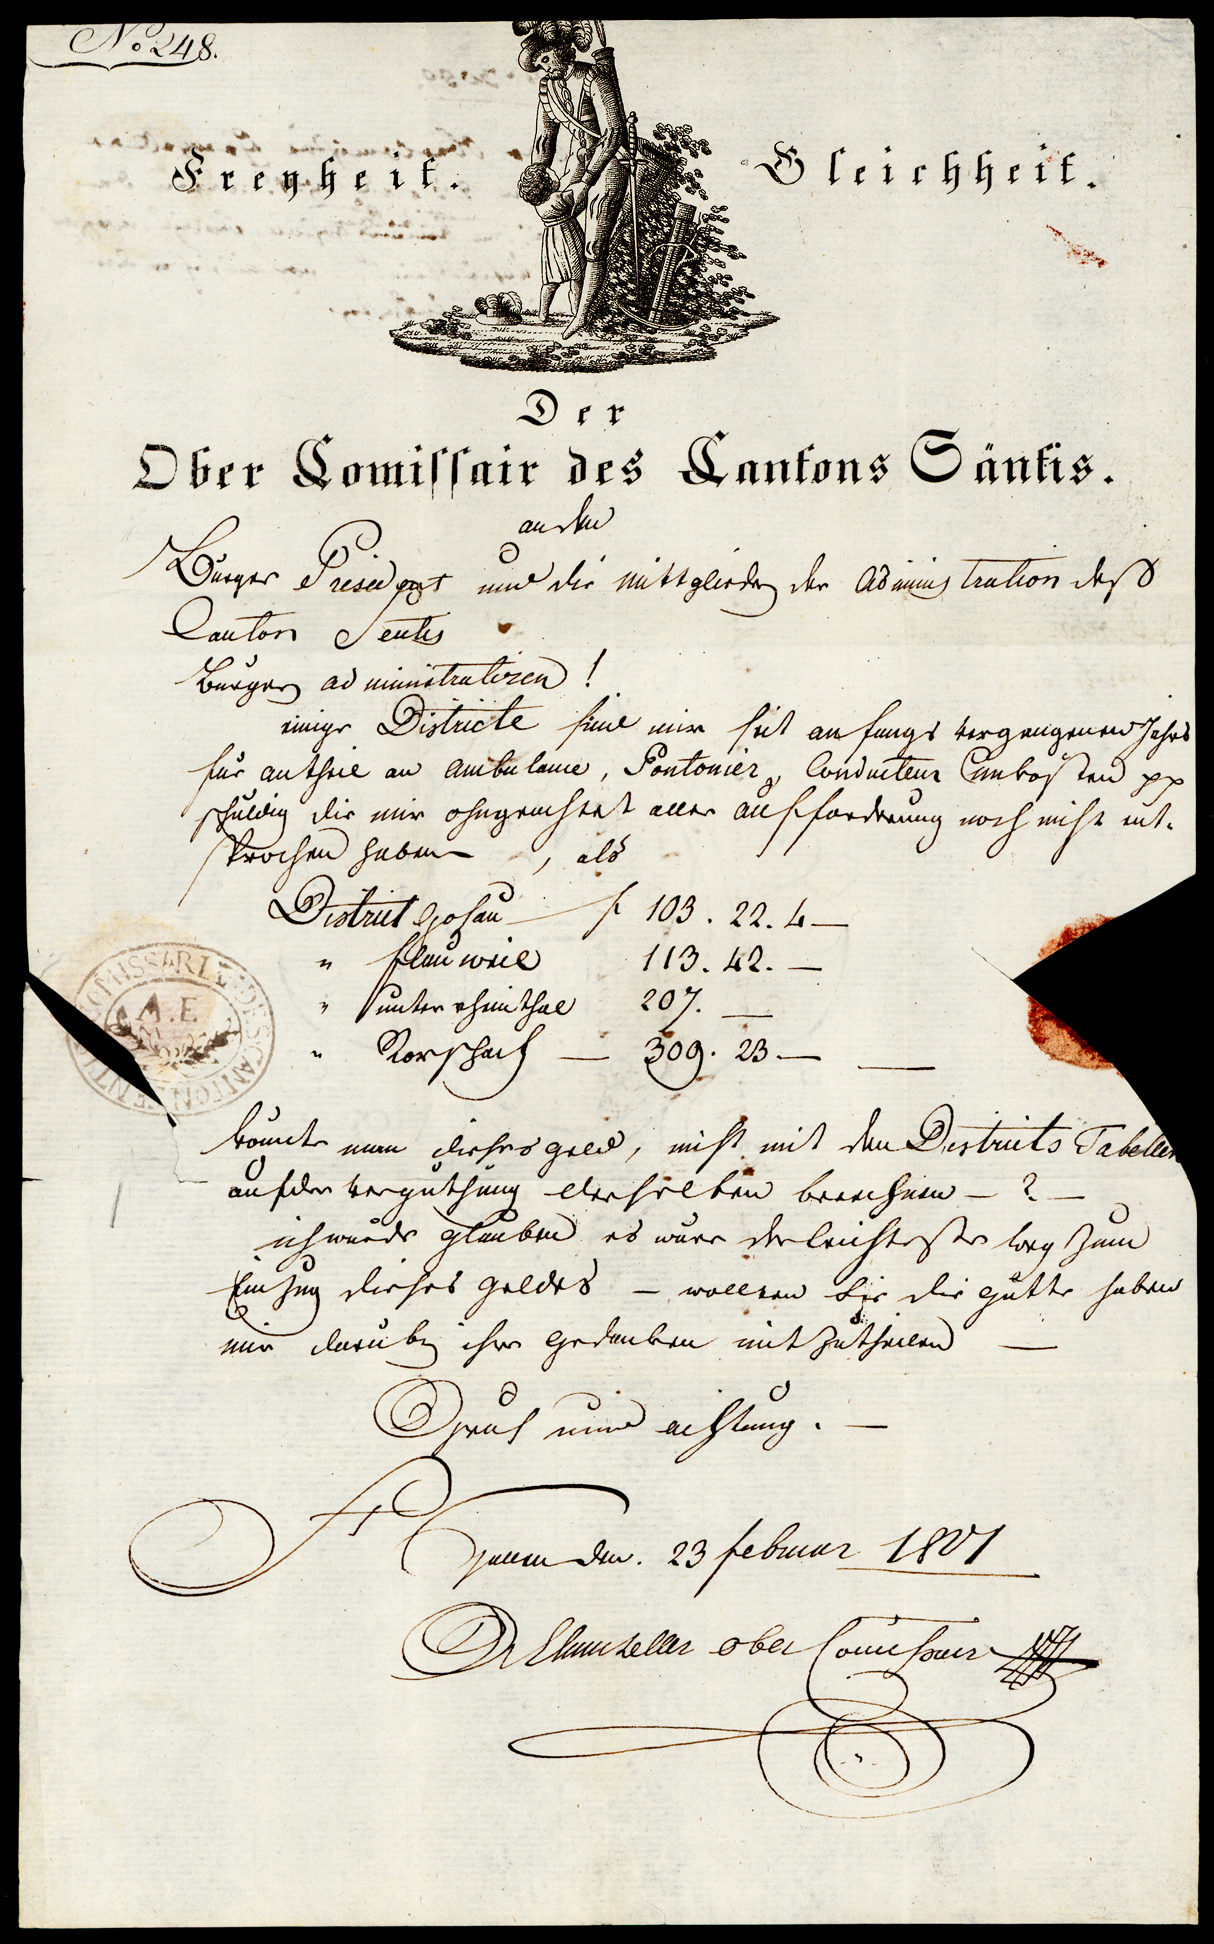 No 248.
Freyheit. Gleichheit.
Der
Ober Comissair des Cantons Säntis.
an den
Burger Presedent und die Mittglieder der Administration deß
Canton Sentis
Burger administratoren!
einige Districte sind mir seit anfangs vergangenen Jahrs
für antheil an Ambulance, Pontonier, Conducteur Unkosten pp
schuldig die mir ohngeachtet aller aufforderung noch nicht ent-
sprochen haben, als
District Gosau f 103. 22. 4 —
" flauweil 113. 42. —
" unterrheinthal 207. —
" Rorschach — 309. 23 —
könnte man dieses geld, nicht mit den Districts Tabellen
auf der Vergüthung derselben berechnen — ? —
ich würde glauben es ware der leichteste weg zum
Einzug dieses geldes — wollen Sie die gütte haben
mir darüber ihre gedanken mit zutheilen —
Gruß und achtung. —
St Gallen den. 23 februar 1801
ober Comissair